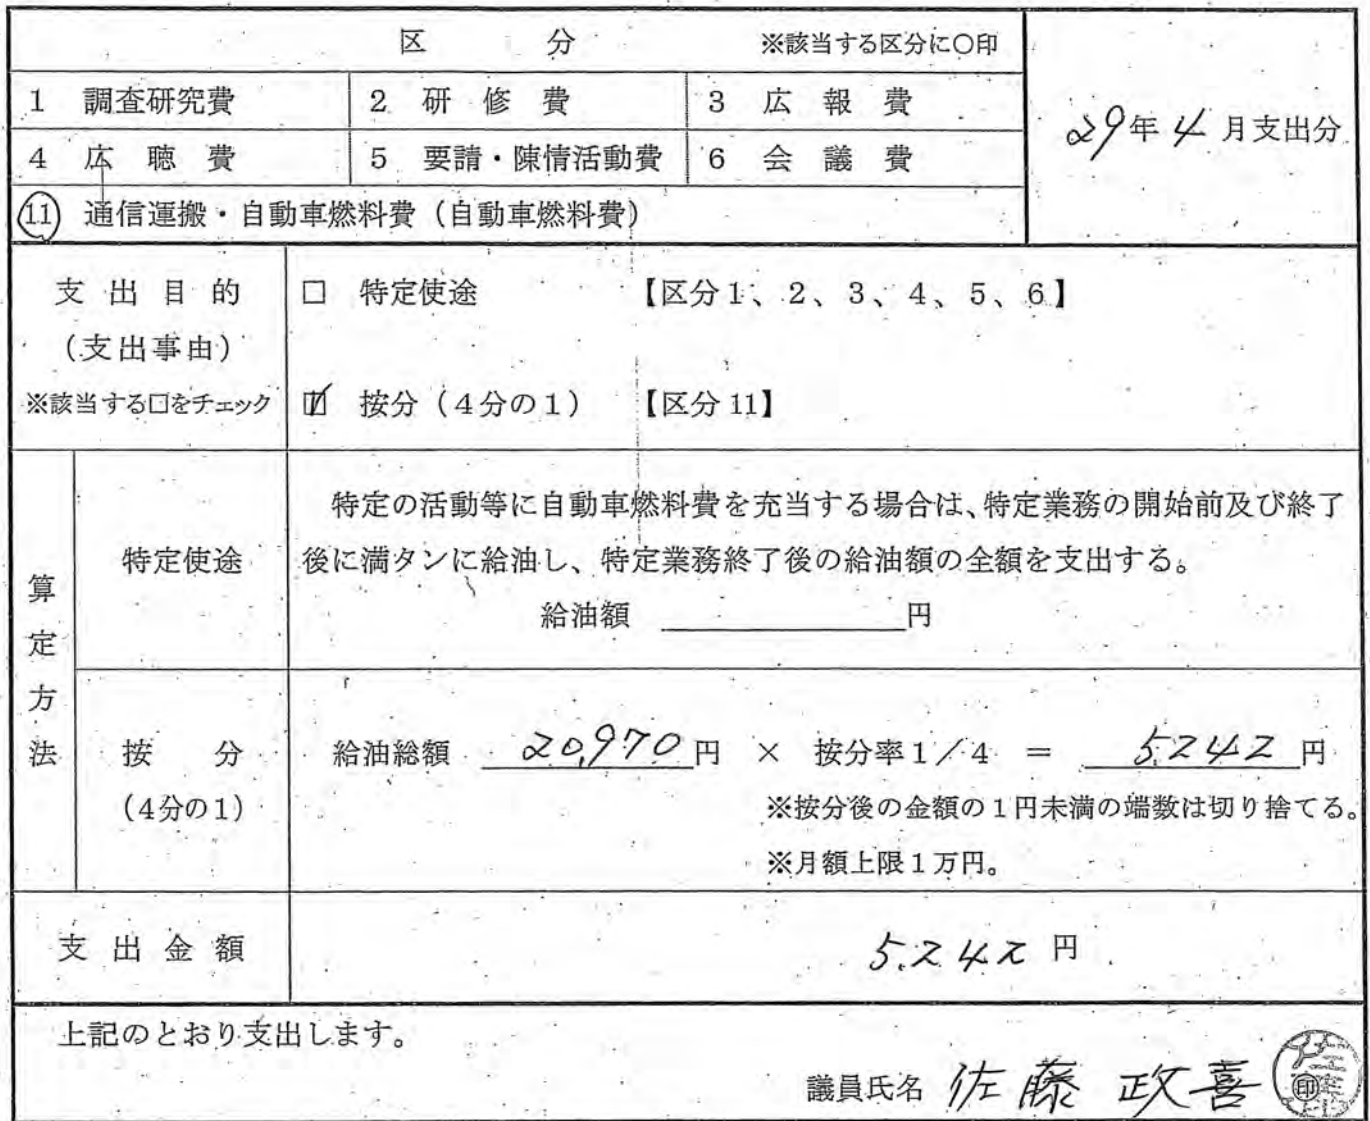 区 分 ※該当する区分に○印
1 調査研究費 2 研修費 3 広報費
29年4月支出分
4 広聴費 5 要請・陳情活動費 6 会議費
11 通信運搬・自動車燃料費（自動車燃料費）
支出目的
（支出事由）
※該当する□をチェック
□ 特定使途 【区分1、2、3、4、5、6】
☑ 按分（4分の1） 【区分11】
算定方法
特定使途
特定の活動等に自動車燃料費を充当する場合は、特定業務の開始前及び終了
後に満タンに給油し、特定業務終了後の給油額の全額を支出する。
給油額 円
按分
（4分の1）
給油総額 20,970円 × 按分率1／4 ＝ 5.242円
※按分後の金額の1円未満の端数は切り捨てる。
※月額上限1万円。
支出金額 5.242円
上記のとおり支出します。
議員氏名 佐藤 政喜 ㊞